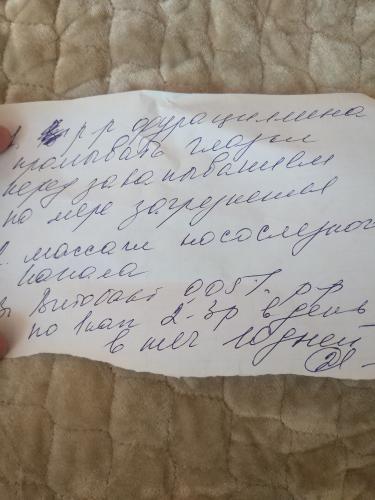 1. р-р фурацилина
промывать глазки
перед закапыванием
по мере загрязнения
2. массаж носослезного
канала
3) Витабакт 0,05% р-р
по 1 кап 2-3р в день
в теч 10 дней